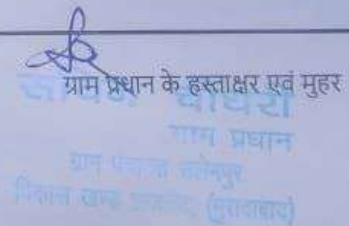 ग्राम प्रधान के हस्ताक्षर एवं मुहर
चौधरी
ग्राम प्रधान
ग्राम पंचायत
विकास खण्ड (मुरादाबाद)